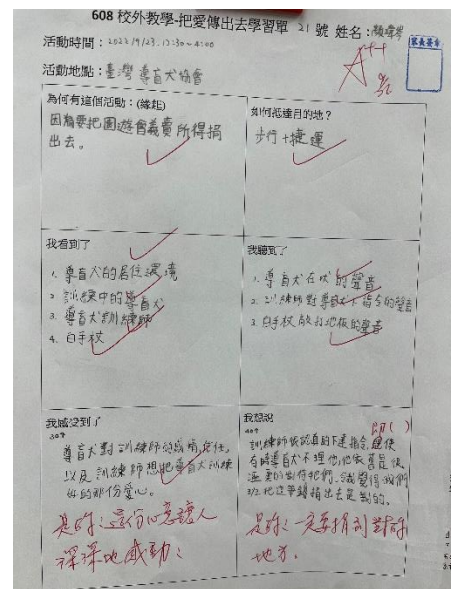 608 校外教學-把愛傳出去學習單 21 號 姓名:
家長簽章
活動時間:2022/9/23.12:30~4:00
活動地點:臺灣導盲犬協會
A++
為何有這個活動:(緣起)
因為要把園遊會義賣所得捐
出去。
如何抵達目的地?
步行+捷運
我看到了
1. 導盲犬的居住環境
2. 訓練中的導盲犬
3. 導盲犬訓練師
4. 白手杖
我聽到了
1. 導盲犬在吠的聲音
2. 訓練師對導盲犬下指令的聲音
3. 白手杖敲打地板的聲音
我感受到了
30字
導盲犬對訓練師的感情,信任,
以及訓練師想把導盲犬訓練
好的那份愛心。
是呀!這份心意讓人
深深地感動!
我想說
40字
訓練師很認真的下達指令,
有時導盲犬不理他,他依舊是很
溫柔的對待牠們。我覺得我們
把這筆錢捐出去是對的。
是呀!一定要捐到對的
地方。